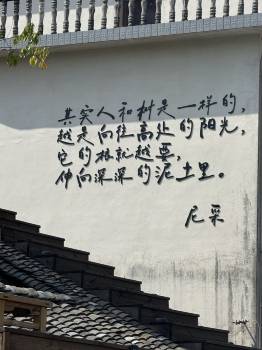 其实人和树是一样的，
越是向往高处的阳光，
它的根就越要，
伸向深深的泥土里。
尼采